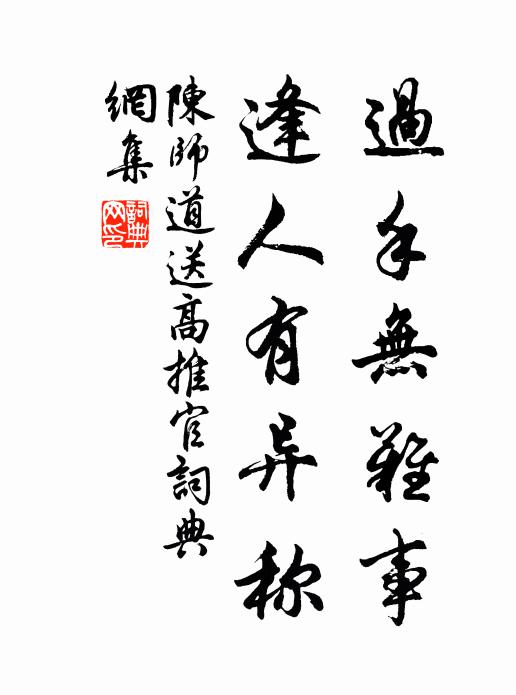 過手無難事
逢人有异称
陳師道送高推官詞典
網集
詞典網印